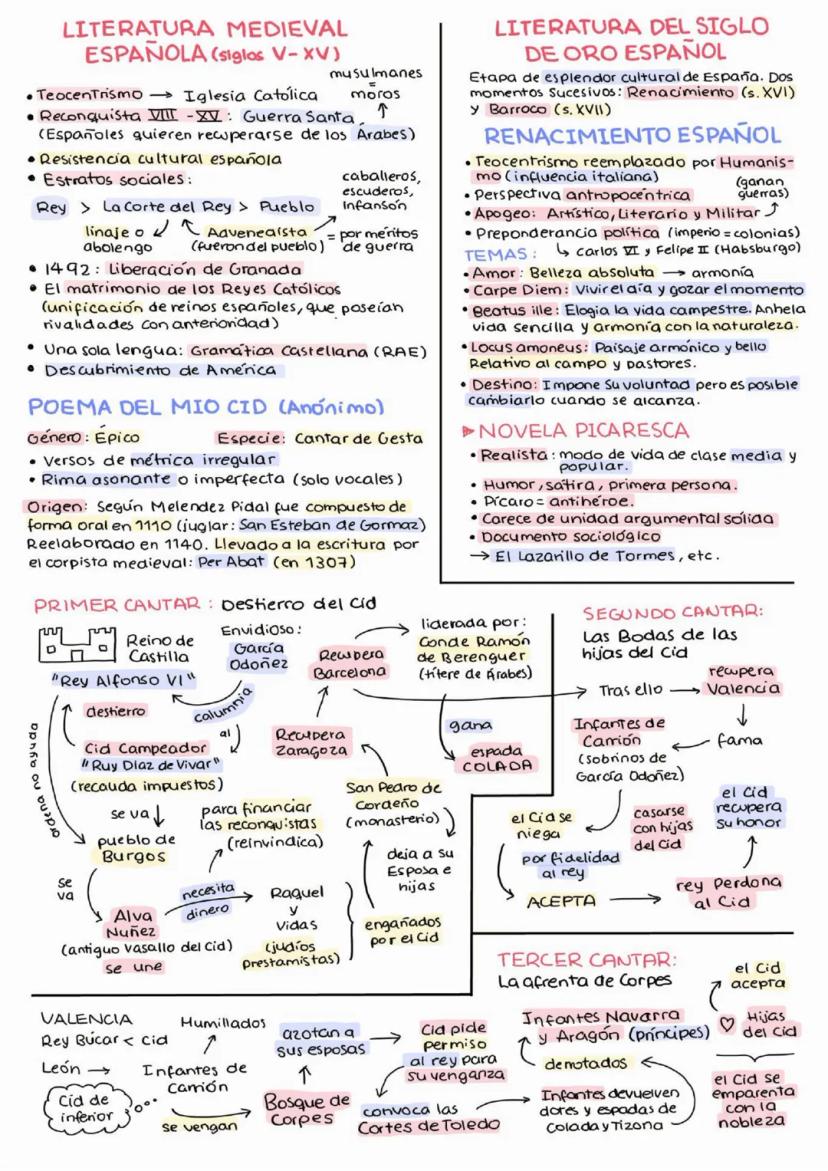 LITERATURA MEDIEVAL
ESPAÑOLA (siglos V-XV)
musulmanes
• Teocentrismo → Iglesia Católica = moros
• Reconquista VIII - XV : Guerra Santa ↑
(Españoles quieren recuperarse de los Árabes)
• Resistencia cultural española
• Estratos sociales :
caballeros,
escuderos,
infansón
Rey > La Corte del Rey > Pueblo
linaje o
abolengo
Advenealsta
(fueron del pueblo)
= por méritos
de guerra
• 1492 : Liberación de Granada
• El matrimonio de los Reyes Católicos
(unificación de reinos españoles, que poseían
rivalidades con anterioridad)
• Una sola lengua: Gramática Castellana (RAE)
• Descubrimiento de América
POEMA DEL MIO CID (Anónimo)
Género : Épico
Especie: Cantar de Gesta
• Versos de métrica irregular
• Rima asonante o imperfecta (solo vocales)
Origen: Según Melendez Pidal fue compuesto de
forma oral en 1110 (juglar: San Esteban de Gormaz)
Reelaborado en 1140. Llevado a la escritura por
el corpista medieval: Per Abat (en 1307)
LITERATURA DEL SIGLO
DE ORO ESPAÑOL
Etapa de esplendor cultural de España. Dos
momentos sucesivos: Renacimiento (s. XVI)
y Barroco (s. XVII)
RENACIMIENTO ESPAÑOL
• Teocentrismo reemplazado por Humanis-
mo (influencia italiana)
• Perspectiva antropocéntrica
(ganan
guerras)
• Apogeo: Artístico, Literario y Militar
• Preponderancia política (imperio = colonias)
↳ Carlos VI y Felipe II (Habsburgo)
TEMAS :
• Amor : Belleza absoluta → armonía
• Carpe Diem: Vivir el día y gozar el momento
• Beatus ille: Elogia la vida campestre. Anhela
vida sencilla y armonía con la naturaleza.
• Locus amoneus: Paisaje armónico y bello
Relativo al campo y pastores.
• Destino: Impone su voluntad pero es posible
cambiarlo cuando se alcanza.
▶ NOVELA PICARESCA
• Realista : modo de vida de clase media y
popular.
• Humor, sátira, primera persona.
• Pícaro = antihéroe.
• Carece de unidad argumental sólida
• Documento sociológico
→ El Lazarillo de Tormes, etc.
PRIMER CANTAR : Destierro del Cid
Reino de
Castilla
"Rey Alfonso VI"
Envidioso :
García
Odoñez
calumnia
al
destierro
Cid Campeador
"Ruy Díaz de Vivar"
(recauda impuestos)
ordena no ayuda
se va
pueblo de
Burgos
se
va
Alva
Nuñez
(antiguo vasallo del Cid)
se une
necesita
dinero
para financiar
las reconquistas
(reinvindica)
Raquel
y
Vidas
(judíos
prestamistas)
engañados
por el Cid
San Pedro de
Cordeño
(monasterio)
deja a su
Esposa e
hijas
Recupera
Zaragoza
Recupera
Barcelona
liderada por :
Conde Ramón
de Berenguer
(títere de Árabes)
gana
espada
COLADA
SEGUNDO CANTAR:
Las Bodas de las
hijas del Cid
Tras ello
recupera
Valencia
fama
Infantes de
Carrión
(sobrinos de
García Odoñez)
casarse
con hijas
del Cid
el Cid se
niega
por fidelidad
al rey
ACEPTA
rey Perdona
al Cid
el Cid
recupera
su honor
TERCER CANTAR:
La afrenta de Corpes
VALENCIA
Rey Búcar < Cid
León →
Infantes de
Carrión
Humillados
Cid de
inferior
se vengan
Bosque de
Corpes
azotan a
sus esposas
Cid pide
permiso
al rey para
su venganza
convoca las
Cortes de Toledo
Infantes devuelven
dores y espadas de
Colada y Tizona
demotados
Infantes Navarra
y Aragón (príncipes)
♡ Hijas
del Cid
el Cid
acepta
el Cid se
emparenta
con la
nobleza